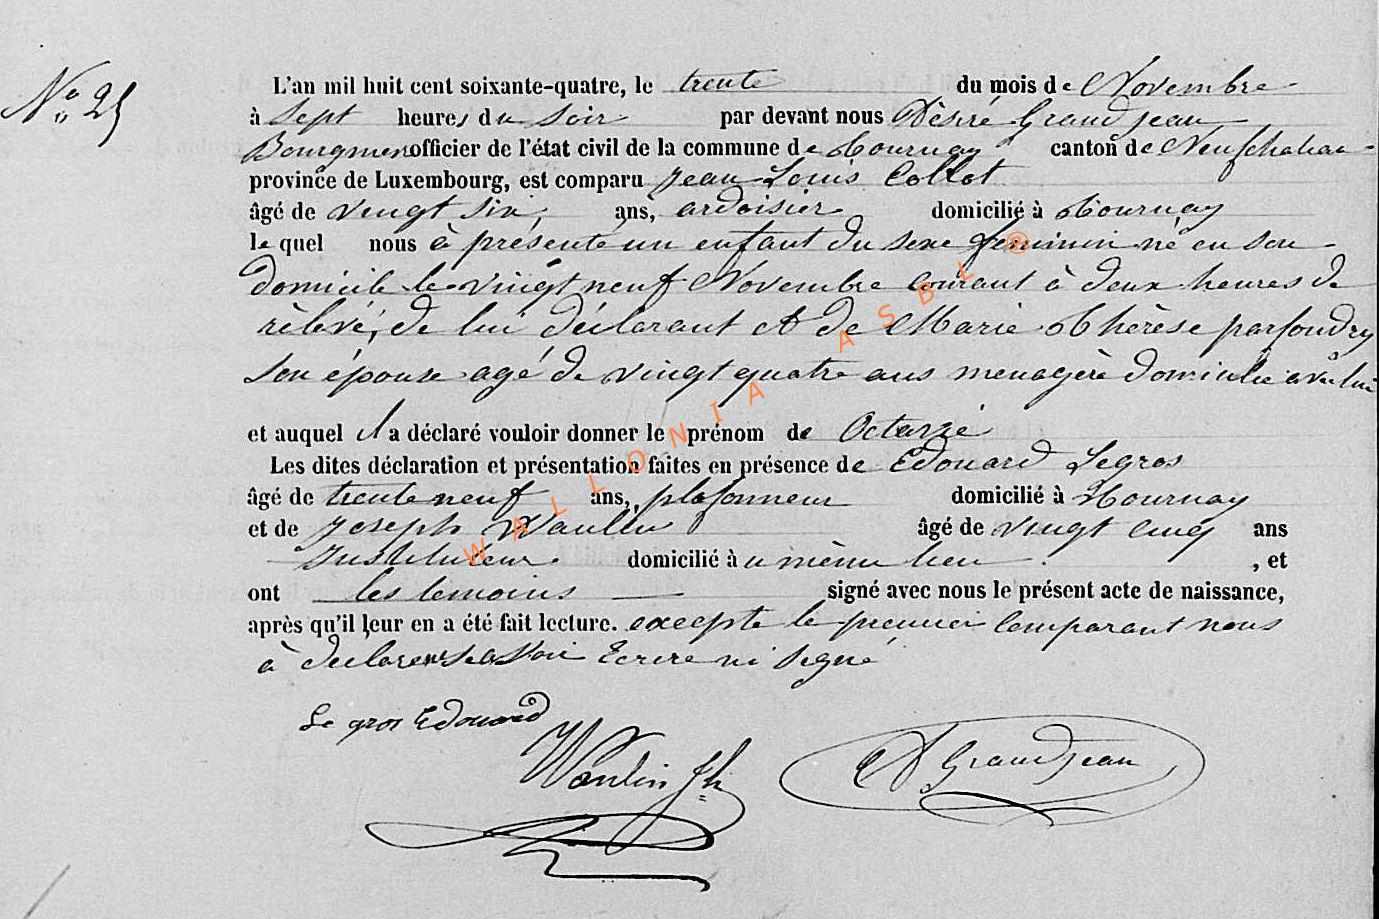 No 25
L'an mil huit cent soixante-quatre, le trente du mois de Novembre
à Sept heures du Soir par devant nous Désiré Grandjean
Bourgmer officier de l'état civil de la commune de Tournay canton de Neufchateau
province de Luxembourg, est comparu Jean Louis Collot
âgé de vingt six ans, ardoisier domicilié à Tournay
le quel nous à présenté un enfant du sexe feminin né en son
domicile le vingt neuf Novembre courant à deux heures de
rèlevé, de lui déclarant et de Marie Thèrèse parfondry
son épouse agé de vingt quatre ans menagère domiciliée avec lui
et auquel il a déclaré vouloir donner le prénom de Octavie
Les dites déclaration et présentation faites en présence de Edouard Legros
âgé de trente neuf ans, plafonneur domicilié à Tournay
et de Joseph Waulin âgé de vingt cinq ans
Instituteur domicilié au même lieu , et
ont les temoins signé avec nous le présent acte de naissance,
après qu'il leur en a été fait lecture. excepte le premier comparant nous
à déclarer Savoir Ecrire ni Signé
Le gros Edouard
Waulin Jh
D Grandjean
WALLONIA ASBL ®